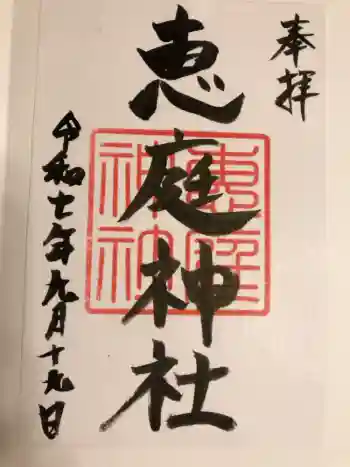 奉拝
恵庭神社
令和七年九月十九日
恵庭
神社